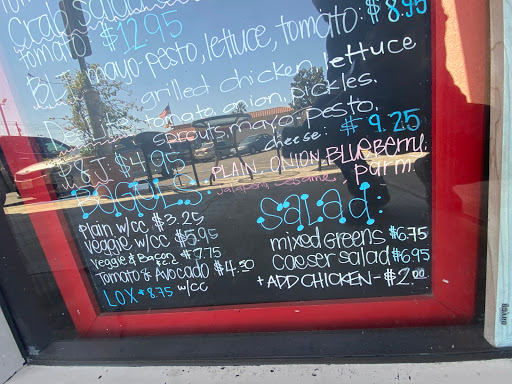 Crab salad
tomato: $12.95
BLT: mayo pesto, lettuce, tomato: $8.95
grilled chicken, lettuce
tomato, onion, pickles,
sprouts, mayo, pesto,
cheese: $9.25
PB & J: $4.95
BAGELS: PLAIN, ONION, BLUEBERRY,
Jalapeno, Sesame, parm.
Plain w/cc $3.25
Veggie w/cc $5.95
Veggie & Bacon $7.75
Tomato & Avocado $4.50
LOX $8.75 w/cc
Salad:
mixed Greens $6.75
caeser salad $6.95
+ ADD CHICKEN - $2.00